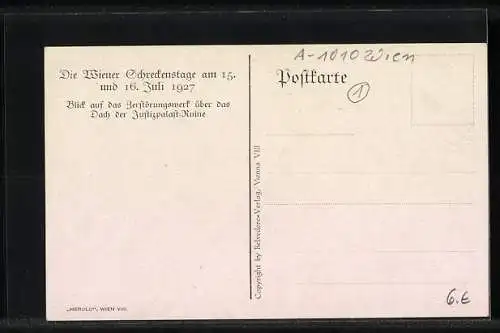 Die Wiener Schreckenstage am 15.
und 16. Juli 1927
Blick auf das Zerstörungswerk über das
Dach der Justizpalast-Ruine
„HEROLD", WIEN VIII.
Copyright by Belvedere-Verlag, Vienna VIII
A-1010 Wien
Postkarte
1
6.E